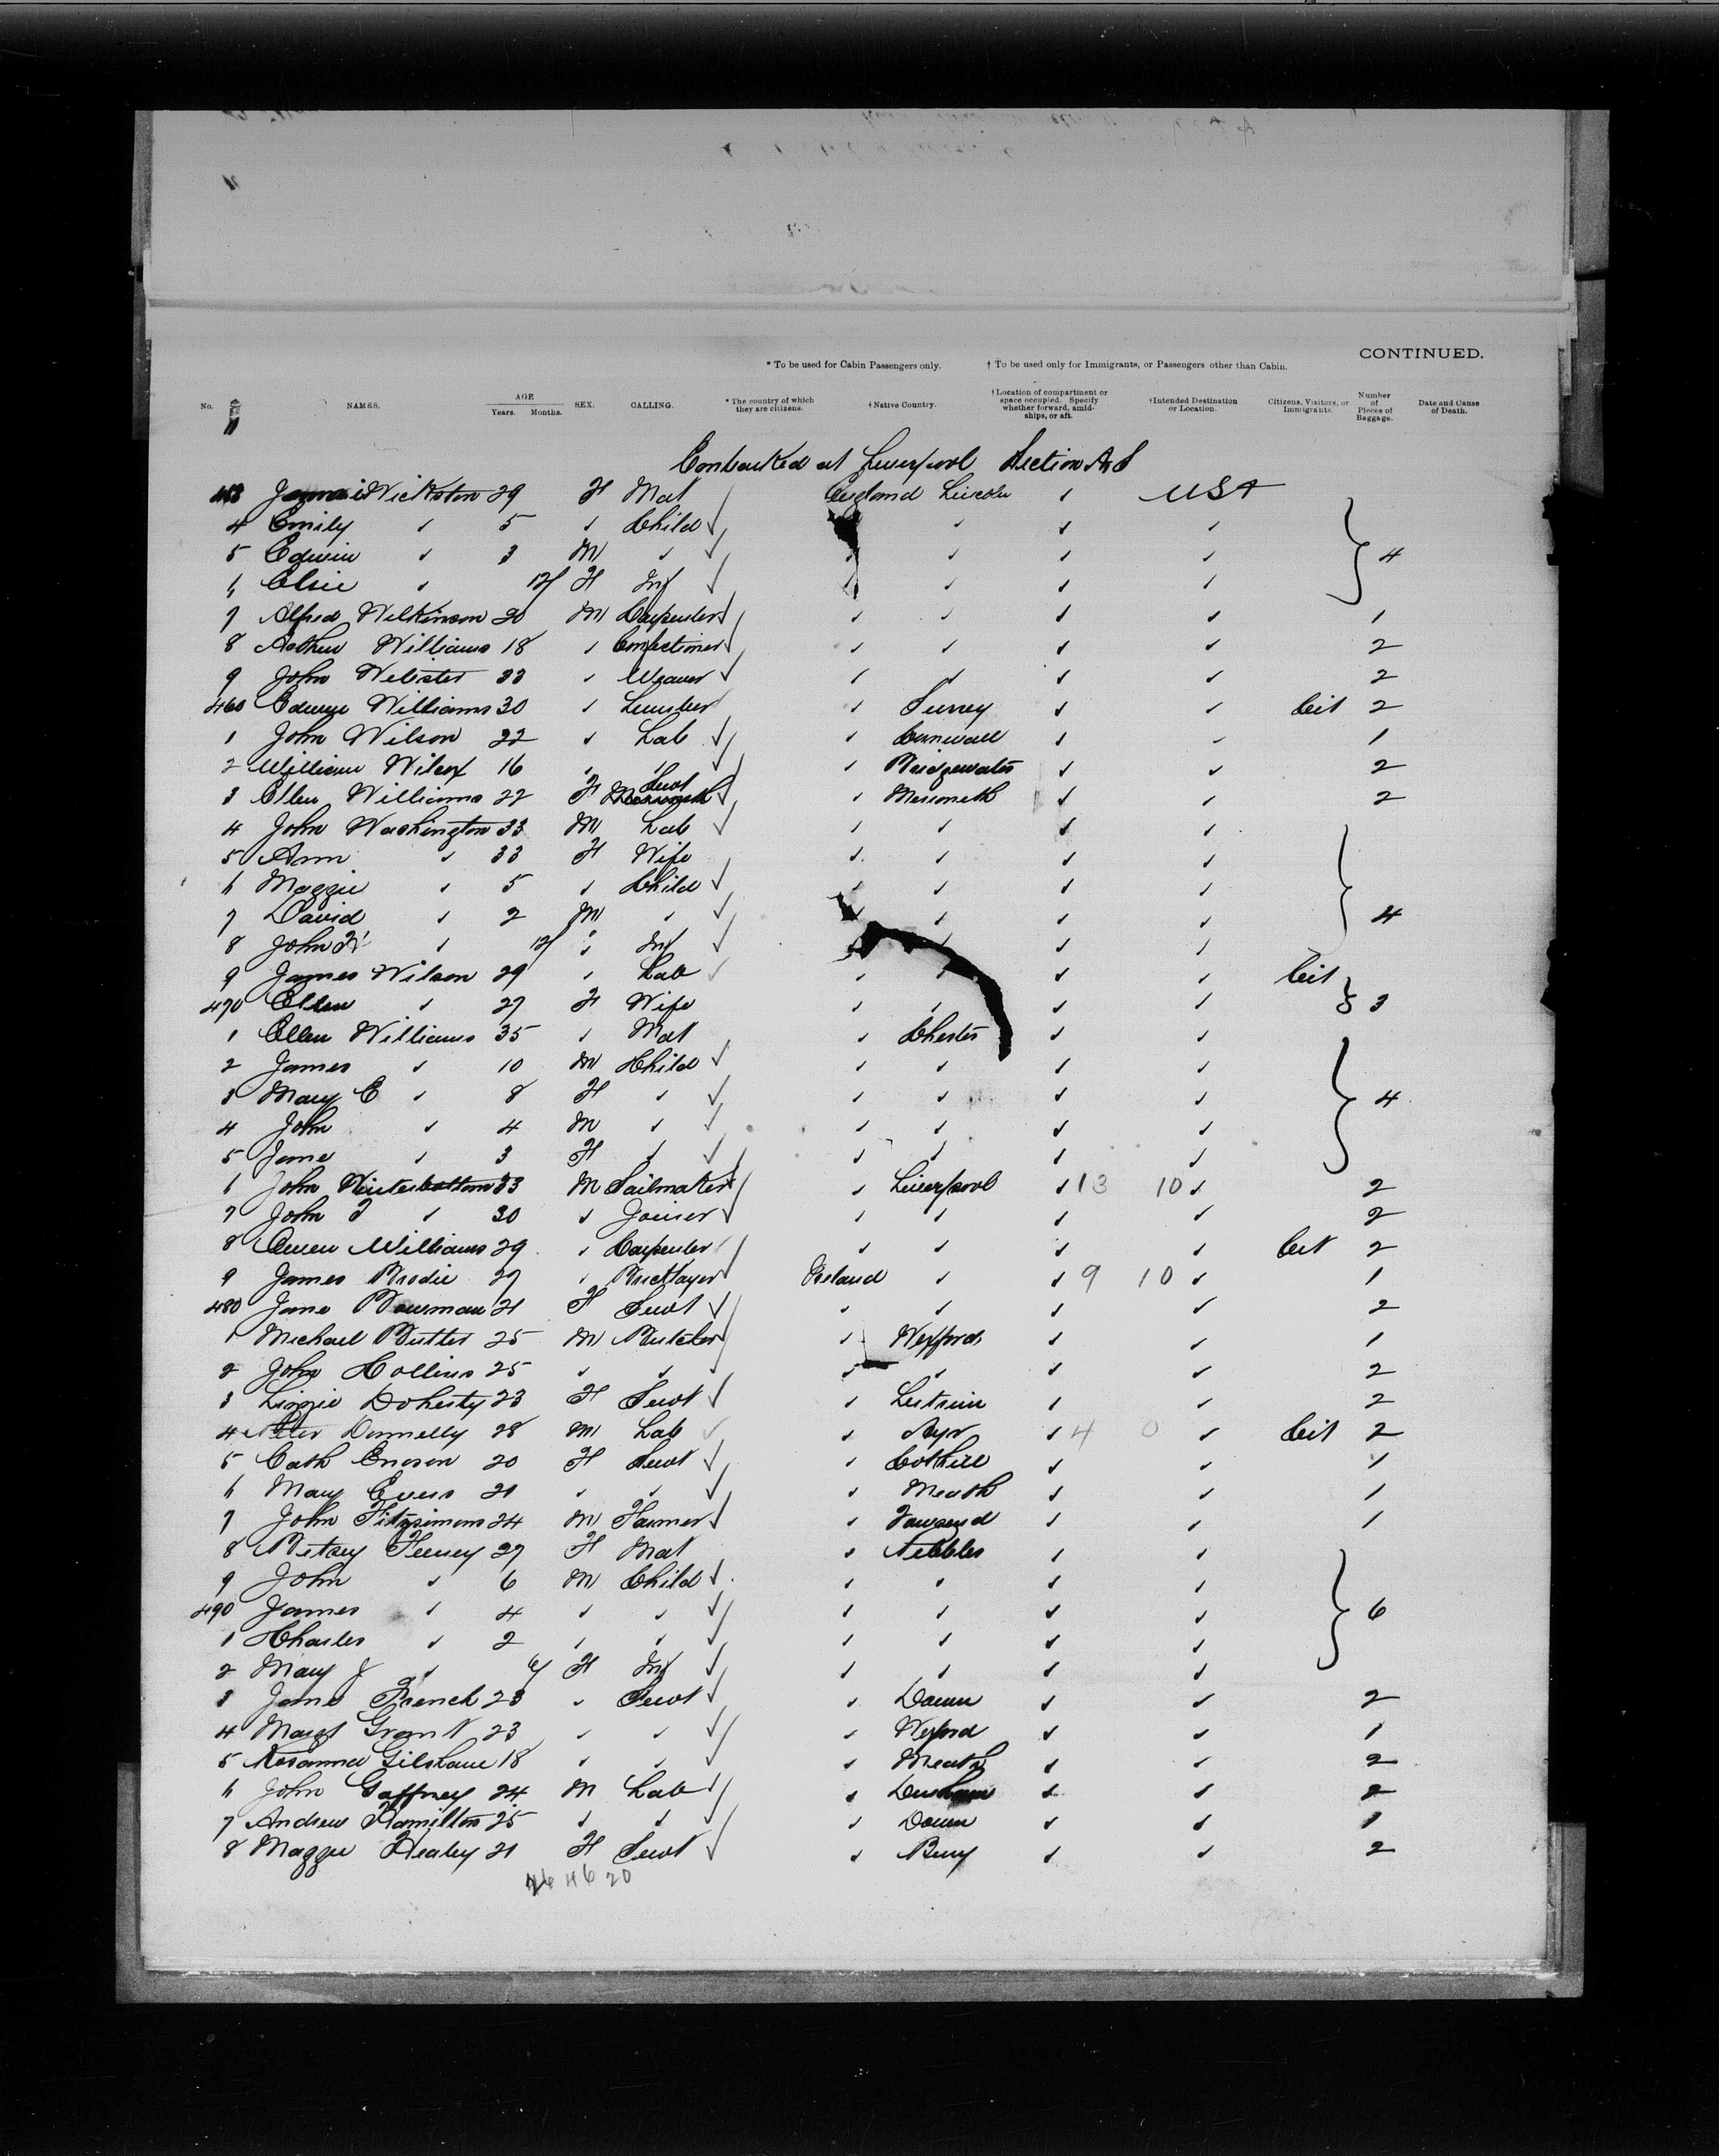 CONTINUED.
* To be used for Cabin Passengers only. † To be used only for Immigrants, or Passengers other than Cabin.
No. NAMES. AGE Years. Months. SEX. CALLING. * The country of which they are citizens. † Native Country. † Location of compartment or space occupied. Specify whether forward, amidships, or aft. † Intended Destination or Location. Citizens, Visitors, or Immigrants. Number of Pieces of Baggage. Date and Cause of Death.
Embarked at Liverpool Section
Wickston 29 F Mat England Lincoln USA
4 Emily " 5 " Child
5 Edwin " 3 M " 4
6 Elsie " 12/ F Inf
7 Alfred Wilkinson 20 M Carpenter 1
8 Arthur Williams 18 " Confectioner 2
9 John Webster 33 " Weaver 2
460 Williams 30 " Surrey Cit 2
1 John Wilson 22 " Lab " Cornwall 1
2 William Wilcox 16 " " Bridgewater 2
3 Ellen Williams 22 F Servt " Merioneth 2
4 John Washington 33 M Lab
5 Ann " 33 F Wife
6 Maggie " 5 " Child
7 David " 2 M " 4
8 John " 12/ " Inf
9 James Wilson 29 " Lab Cit
470 Ellen " 27 F Wife 3
1 Ellen Williams 35 " Mat " Chester
2 James " 10 M Child
3 Mary E " 8 F " 4
4 John " 4 M "
5 Jane " 3 F "
6 John Winterbottom 33 M Sailmaker " Liverpool " 13 10 " 2
7 John T " 30 " Joiner 2
8 Owen Williams 29 " Carpenter Cit 2
9 James Brodie 27 " Bricklayer Ireland " 9 10 " 1
480 Jane Bowman 21 F Servt 2
1 Michael Butler 25 M Butcher " Wexford 1
2 John Hollins 25 " " 2
3 Lizzie Doherty 23 F Servt " Leitrim 2
4 Peter Donnelly 28 M Lab " Ayr " 4 0 " Cit 2
5 Cath 20 F Servt " Cothill 1
6 Mary Evers 21 " " Meath 1
7 John Fitzsimons 24 M Farmer " 1
8 Betsey Feeney 27 F Mat "
9 John " 6 M Child
490 James " 4 " " 6
1 Charles " 2 " "
2 Mary J " 6/ F Inf
3 Jane French 23 " Servt " Down 2
4 Margt Grant 23 " " Wexford 1
5 Rosanna Gilshane 18 " " Meath 2
6 John Gaffney 24 M Lab " Durham 2
7 Andrew Hamilton 25 " " Down 1
8 Maggie Healey 21 F Servt " Bury 2
46 20